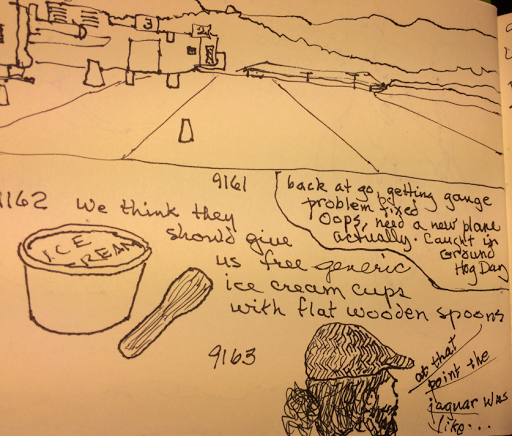 3
2
9161
back at go, getting gauge
problem fixed
Oops, need a new plane
actually. Caught in
Ground
Hog Day
9162
We think they
should give
us free generic
ice cream cups
with flat wooden spoons
ICE
CREAM
9163
at that
point the
jaguar was
like...